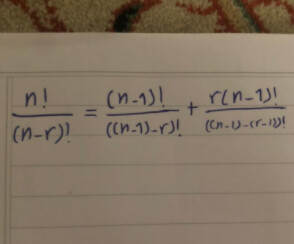 n!/(n-r)! = (n-1)!/((n-1)-r)! + r(n-1)!/((n-1)-(r-1))!